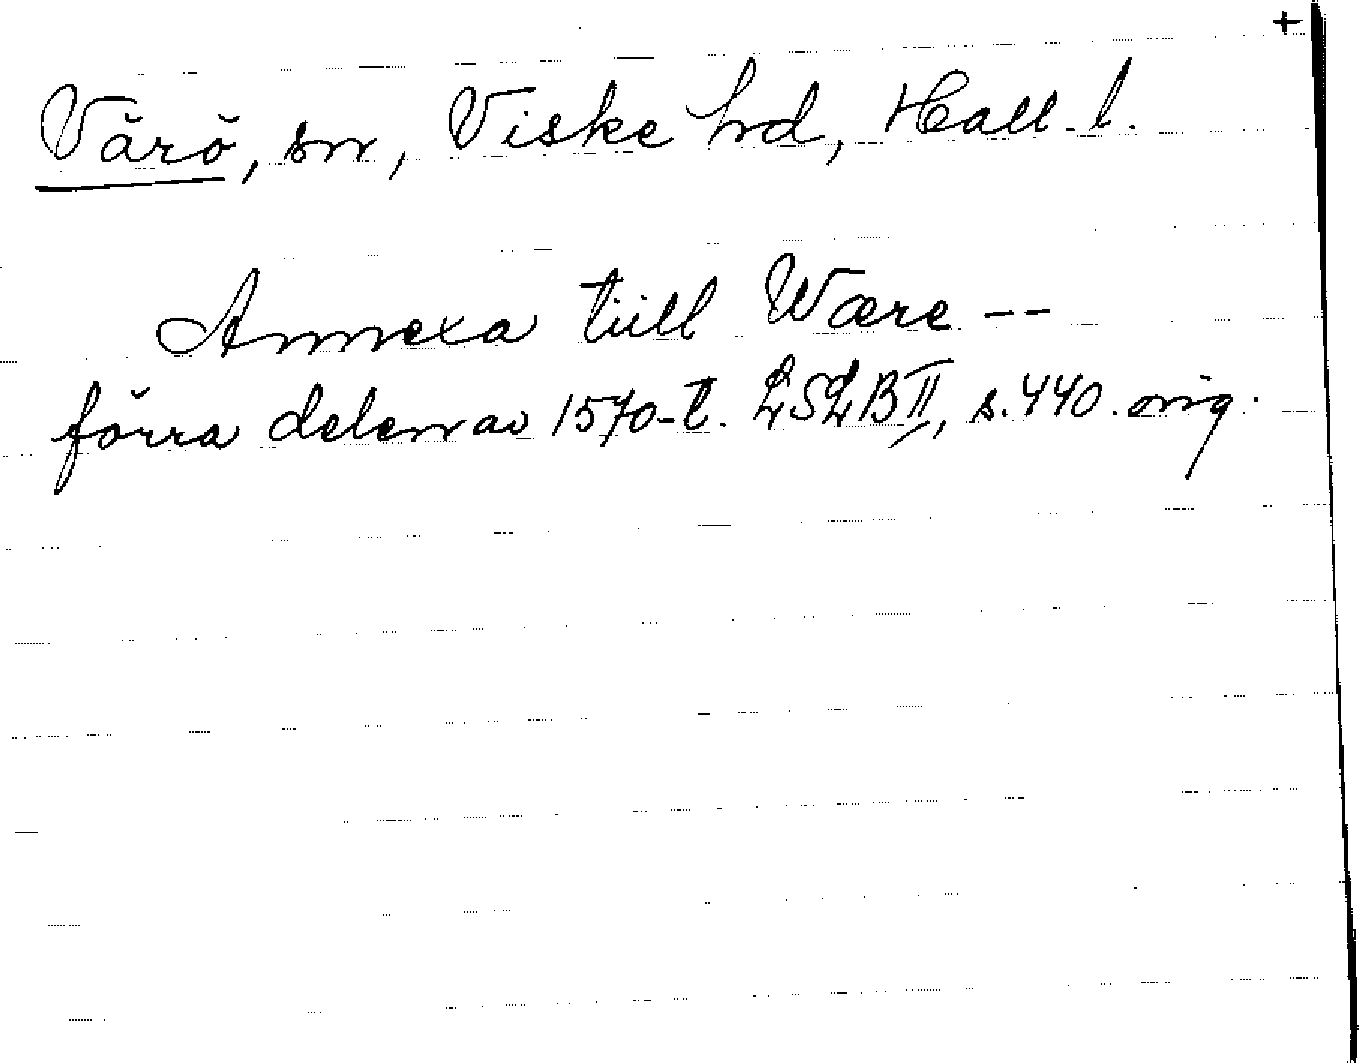 +
Värö, sn, Viske hd, Hall. l.
Annexa tiill Wære --
förra delen av 1570-t. LSLB II, s. 440. orig.